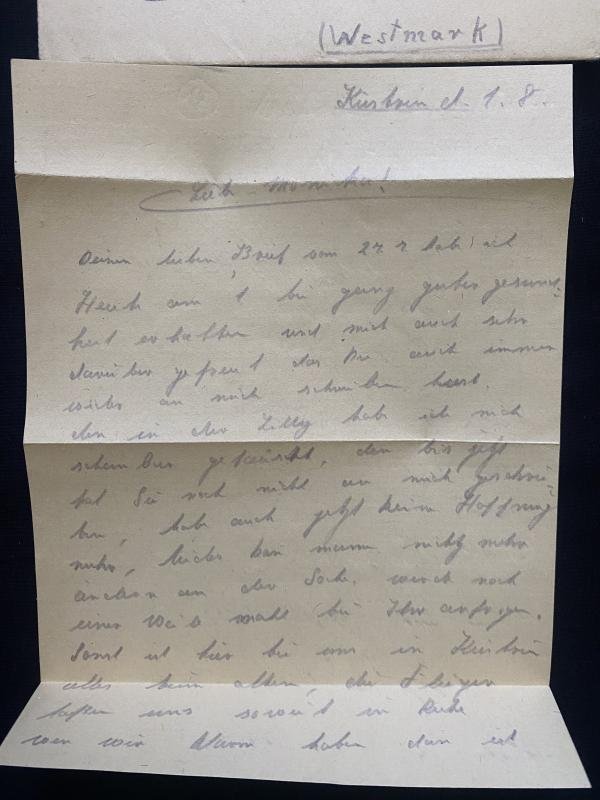 (Westmark)
Küstrin d. 1. 8.
Lieb Monika!
Deinen lieben Brief vom 27. 7 hab ich
Heute am 1 bei ganz guter gesund-
heit erhalten und mich auch sehr
darüber gefreut das Du auch immer
wieder an mich schreiben tust.
den in der Lilly hab ich mich
scheinbar getäuscht, den bis jetzt
hat Sie noch nicht an mich geschrie-
ben, hab auch jetzt keine Hoffnung
mehr, leider kan mann nichts mehr
ändern an der Sache. werde noch
einen mahl bei Ihr anfragen.
Sonst ist hier bei uns in Küstrin
alles beim alten, die Flieger
laßen uns soweit in Ruhe
wen wir Alarm haben dan ist